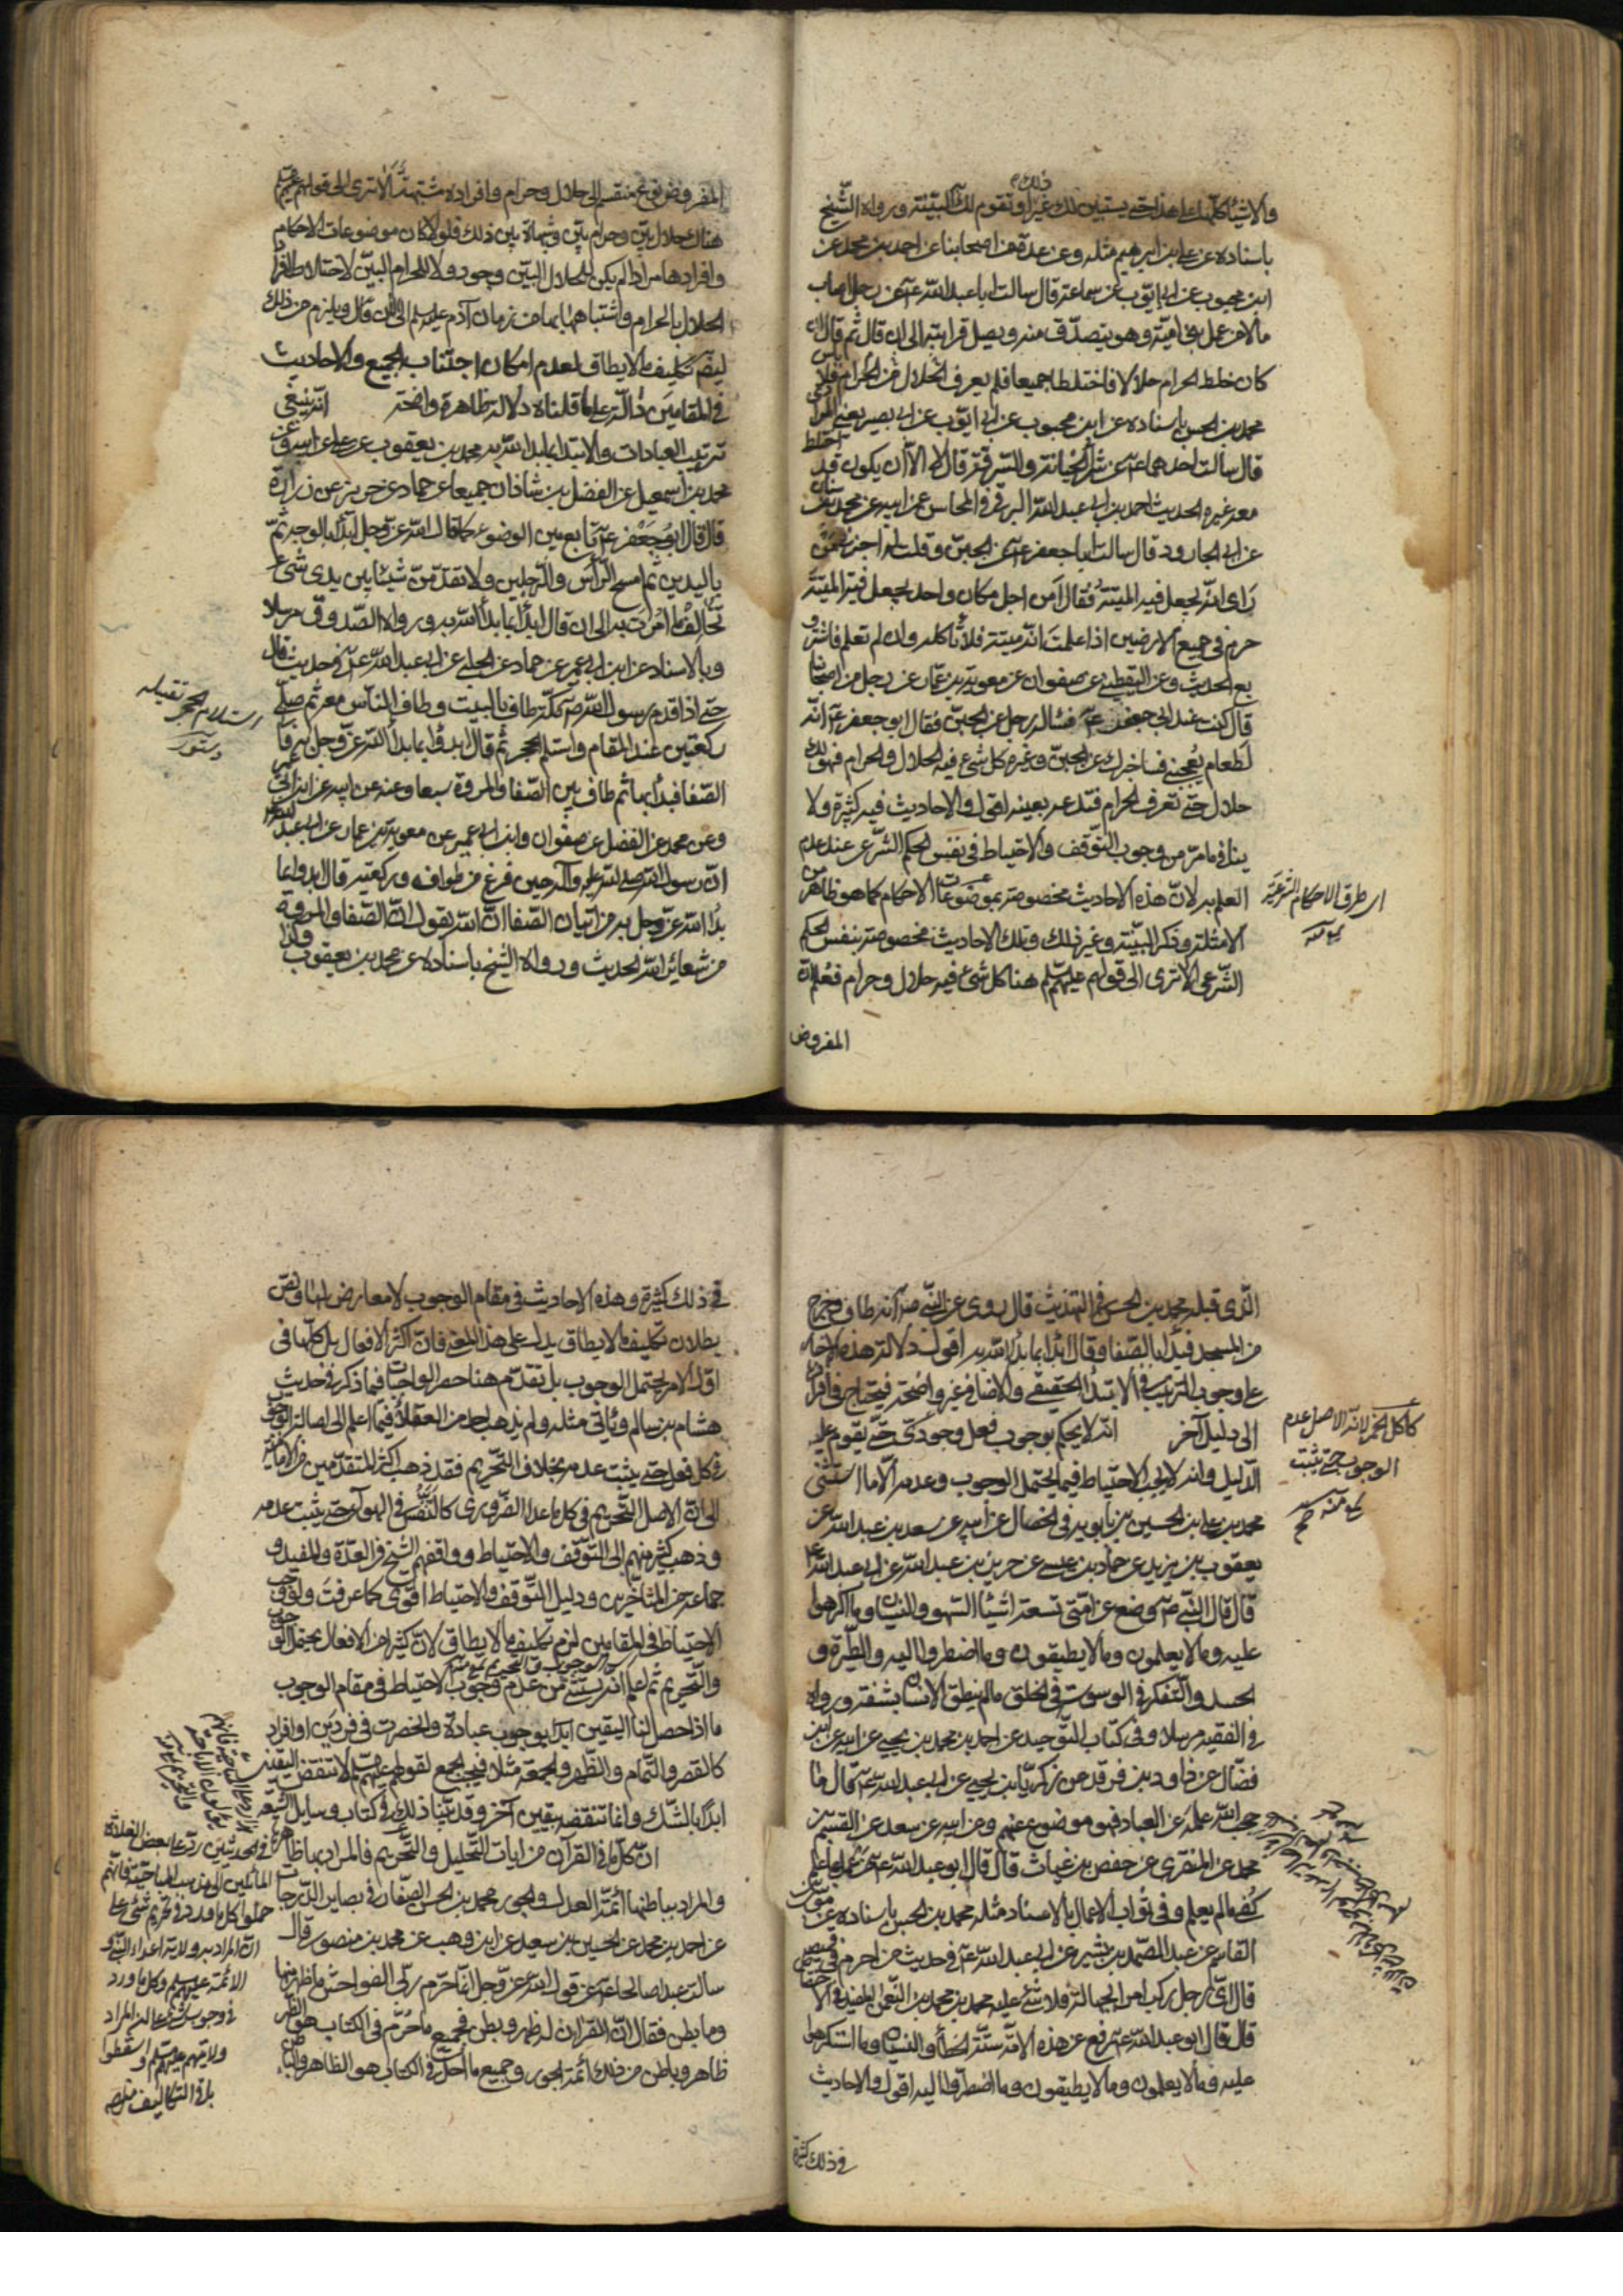 والاشياء كلها على هذا حتى يستبين لك غير ذلك او تقوم لك البينة ورواه الشيخ
باسناده عن علي بن ابرهيم مثله وعن عدة من اصحابنا عن احمد بن محمد عن
ابن محبوب عن ابي ايوب عن سماعة قال سالت ابا عبد الله عم عن رجل اصاب
مالا من عمل بني امية وهو يتصدق منه ويصل قرابته الى ان قال ثم قال ان
كان خلط الحرام حلالا فاختلطا جميعا فلم يعرف الحلال من الحرام فلا باس
محمد بن الحسن باسناده عن ابن محبوب عن ابي ايوب عن ابي بصير يعني المرادي
قال سالت احدهما عم عن شرا الخيانة والسرقة قال لا الا ان يكون قد اختلط
معه غيره الحديث احمد بن ابي عبد الله البرقي في المحاسن عن ابيه عن محمد بن سنان
عن ابي الجارود قال سالت ابا جعفر عم عن الجبن وقلت له اخبرني من
راى انه يجعل فيه الميتة فقال امن اجل مكان واحد يجعل فيه الميتة
حرم في جميع الارضين اذا علمت انه ميتة فلا تاكله وان لم تعلم فاشتر و
بع الحديث وعن اليقطيني عن صفوان عن معوية بن عمار عن رجل من اصحابنا
قال كنت عند ابي جعفر عم فساله رجل عن الجبن فقال ابو جعفر عم انه
لطعام يعجبني فساخبرك عن الجبن وغيره كل شيء فيه الحلال والحرام فهو لك
حلال حتى تعرف الحرام فتدعه بعينه اقول والاحاديث فيه كثيرة ولا
ينافي ما مر من وجوب التوقف والاحتياط في نفس الحكم الشرعي عند عدم
العلم به لان هذه الاحاديث مخصوصة بموضوعات الاحكام كما هو ظاهر من
الامثلة وذكر البينة وغير ذلك وتلك الاحاديث مخصوصة بنفس الحكم
الشرعي الا ترى الى قولهم عليهم السلم هنا كل شيء فيه حلال وحرام فعلم ان
المفروض
اي طرق الاحكام الشرعية
المفروض نوع منقسم الى حلال وحرام وافراده مشتبهة الا ترى الى قولهم عليهم السلم
هناك حلال بين وحرام بين وشبهات بين ذلك فلولا كان موضوعات الاحكام
وافرادها مرادا لم يكن للحلال البين وجود ولا للحرام البين لاختلاط افراد
الحلال بالحرام واشتباههما من زمان آدم عليه السلم الى الآن ويلزم من ذلك
ايضا تكليف ما لا يطاق لعدم امكان اجتناب الجميع والاحاديث
في المقامين دالة على ما قلناه دلالة ظاهرة واضحة انه ينبغي
ترتيب العبادات والابتدا بما بدا الله به محمد بن يعقوب عن علي عن ابيه وعن
محمد بن اسمعيل عن الفضل بن شاذان جميعا عن حماد عن حريز عن زرارة
قال قال ابو جعفر عم تابع بين الوضوء كما قال الله عز وجل ابدا بالوجه ثم
باليدين ثم امسح الراس والرجلين ولا تقدمن شيئا بين يدي شيء
تخالف ما امرت به الى ان قال ابدا بما بدا الله به ورواه الصدوق مرسلا
وبالاسناد عن ابن ابي عمير عن حماد عن الحلبي عن ابي عبد الله عم في حديث قال
حتى اذا قدم رسول الله ص مكة طاف بالبيت وطاف الناس معه ثم صلى
ركعتين عند المقام واستلم الحجر ثم قال ابدؤا بما بدا الله عز وجل به فاتى
الصفا فبدا بها ثم طاف بين الصفا والمروة سبعا وعنه عن ابيه عن ابن ابي عمير
وعن محمد عن الفضل عن صفوان وابن ابي عمير عن معوية بن عمار عن ابي عبد الله عم
ان رسول الله صلى الله عليه وآله حين فرغ من طوافه وركعتيه قال ابدوا بما
بدا الله عز وجل به من اتيان الصفا ان الله يقول ان الصفا والمروة
من شعائر الله الحديث ورواه الشيخ باسناده عن محمد بن يعقوب وكذا
استلام الحجر تقبيله
دستور
الذي قبله محمد بن الحسن في التهذيب قال روي عن النبي ص انه طاف وخرج
من المسجد فبدا بالصفا وقال ابدا بما بدا الله به اقول دلالة هذه الاخبار
على وجوب الترتيب في الابتدا الحقيقي والاضافي غير واضحة فيحتاج في افراده
الى دليل آخر انه لا يحكم بوجوب فعل وجودي حتى يقوم عليه
الدليل وانه لا يجب الاحتياط فيما يحتمل الوجوب وعدمه الا ما استثني
محمد بن علي بن الحسين بن بابويه في الخصال عن ابيه عن سعد بن عبد الله عن
يعقوب بن يزيد عن حماد بن عيسى عن حريز بن عبد الله عن ابي عبد الله عم
قال قال النبي ص وضع عن امتي تسعة اشيا السهو والنسيان وما اكرهوا
عليه وما لا يعلمون وما لا يطيقون وما اضطروا اليه والطيرة و
الحسد والتفكر في الوسوسة في الخلق ما لم ينطق الانسان بشفة ورواه
في الفقيه مرسلا وفي كتاب التوحيد عن احمد بن محمد بن يحيى عن ابيه عن ابن
فضال عن داود بن فرقد عن زكريا بن يحيى عن ابي عبد الله عم قال ما
حجب الله علمه عن العباد فهو موضوع عنهم وعن ابيه عن سعد عن القسم بن
محمد عن المنقري عن حفص بن غياث قال قال ابو عبد الله عم من عمل بما علم
كفي ما لم يعلم وفي ثواب الاعمال بالاسناد مثله محمد بن الحسن باسناده عن موسى بن
القاسم عن عبد الصمد بن بشير عن ابي عبد الله عم في حديث من احرم في قميصه
قال اي رجل ركب امرا بجهالة فلا شيء عليه محمد بن محمد بن النعمان المفيد في الاختصاص
قال قال ابو عبد الله عم رفع عن هذه الامة ستة الخطأ والنسيان وما استكرهوا
عليه وما لا يعلمون وما لا يطيقون وما اضطروا اليه اقول والاحاديث
في ذلك كثيرة
كاكل الخبز لانه الاصل عدم
الوجوب حتى يثبت
في ذلك كثيرة وهذه الاحاديث في مقام الوجوب لا معارض لها ونص
بطلان تكليف ما لا يطاق يدل على هذا المعنى فان اكثر الافعال بل كلها في
اول الامر يحتمل الوجوب بل تقدم هنا حصر الواجبات فيما ذكر في حديث
هشام بن سالم وياتي مثله ولم يذهب احد من العقلا فيما اعلم الى اصالة الوجوب
في كل فعل حتى يثبت عدمه بخلاف التحريم فقد ذهب اكثر المتقدمين من الامامية
الى ان الاصل التحريم في كل ما عدا الضروري كالتنفس في الهوآء حتى يثبت عدمه
وذهب كثير منهم الى التوقف والاحتياط ووافقهم الشيخ في العدة والمفيد و
جماعة من المتاخرين ودليل التوقف والاحتياط اقوى كما عرفت ولو وجب
الاحتياط في المقامين لزم تكليف ما لا يطاق لان كثيرا من الافعال يحتمل الوجوب
والتحريم ثم اعلم انه يستثنى من عدم وجوب الاحتياط في مقام الوجوب
ما اذا حصل لنا اليقين ابدا بوجوب عبادة وانحصرت في فردين او افراد
كالقصر والتمام والظهر والجمعة مثلا فيجب الجمع لقولهم عليهم السلم لا تنقض اليقين
ابدا بالشك وانما تنقضه بيقين آخر وقد بينا ذلك في كتاب وسايل الشيعة
ان كل ما في القرآن من ايات التحليل والتحريم فالمراد بها ظاهرها
والمراد بباطنها ائمة العدل والجور محمد بن الحسن الصفار في بصاير الدرجات
عن احمد بن محمد عن الحسين بن سعيد عن ابن وهب عن محمد بن منصور قال
سالت عبدا صالحا عم عن قول الله عز وجل انما حرم ربي الفواحش ما ظهر منها
وما بطن فقال ان القرآن له ظهر وبطن فجميع ما حرم في الكتاب هو الظاهر
ظاهر وباطن من ذلك ائمة الجور وجميع ما احل في الكتاب هو الظاهر والباطن
في الحديثين رد على بعض الغلاة
المائلين الى مذهب المباحية فانهم
حملوا كل ما ورد في تحريم شيء على
ان المراد به ولاية اعداء النبي و
الائمة عليهم السلم وكل ما ورد
في وجوب شيء على ان المراد
ولايتهم عليهم السلم واسقطوا
باقي التكاليف